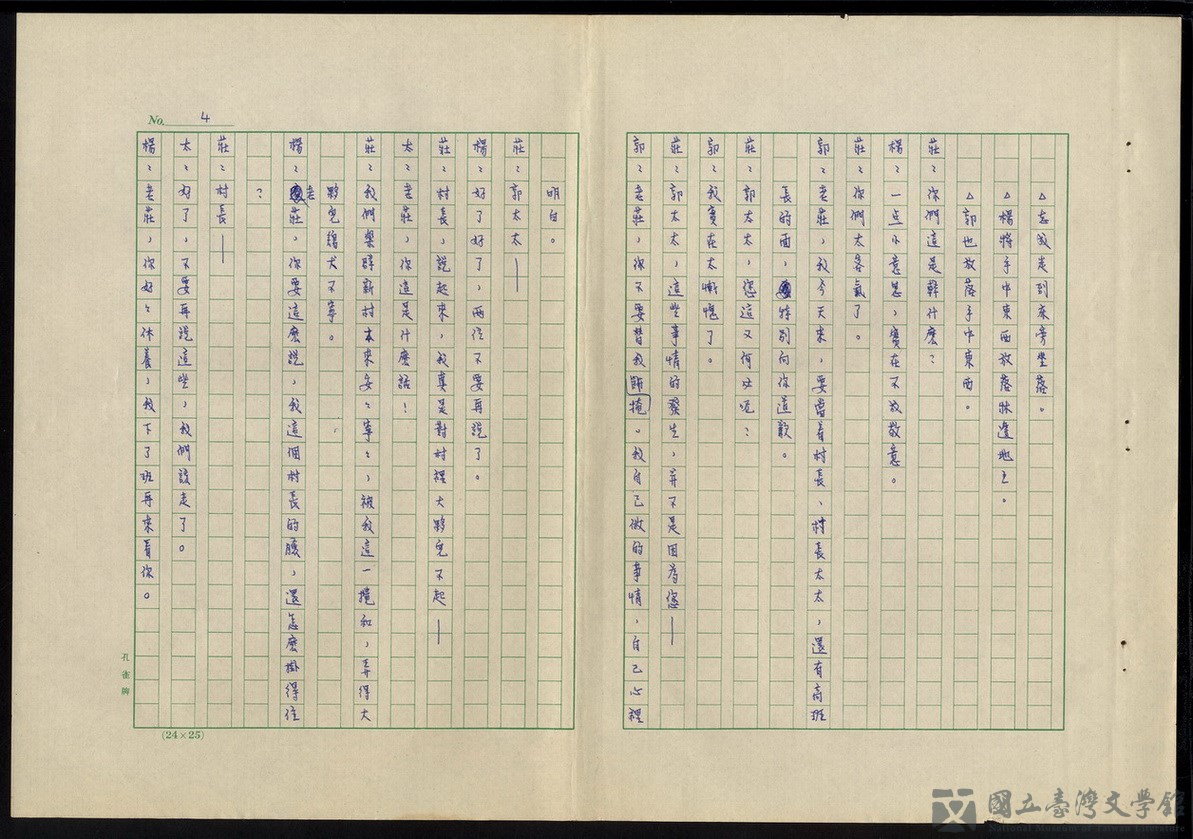 No. 4
△忘成走到床旁坐落。
△楊將手中東西放落牀邊地上。
△郭也放落手中東西。
莊：你們這是幹什麽？
楊：一点小意思，實在不成敬意。
莊：你們太客氣了。
郭：老莊，我今天來，要當着村長、村長太太，還有高班
長的面，特別向你道歉。
莊：郭太太，您這又何必呢？
郭：我實在太慚愧了。
莊：郭太太，這些事情的發生，并不是因為您——
郭：老莊，你不要替我掩。我自己做的事情，自己心裡
明白。
莊：郭太太——
楊：好了好了，兩位不要再說了。
莊：村長，說起來，我真是對村裡大夥兒不起——
太：老莊，你這是什麽話！
莊：我們樂群新村本來安安寧寧，被我這一攪和，弄得大
夥兒雞犬不寧。
楊：老莊，你要這麽說，我這個村長的臉，還怎麽掛得住
？
莊：村長——
太：好了，不要再說這些，我們該走了。
楊：老莊，你好好休養，我下了班再來看你。
孔雀牌
(24×25)
國立臺灣文學館
National Museum of Taiwan Literature